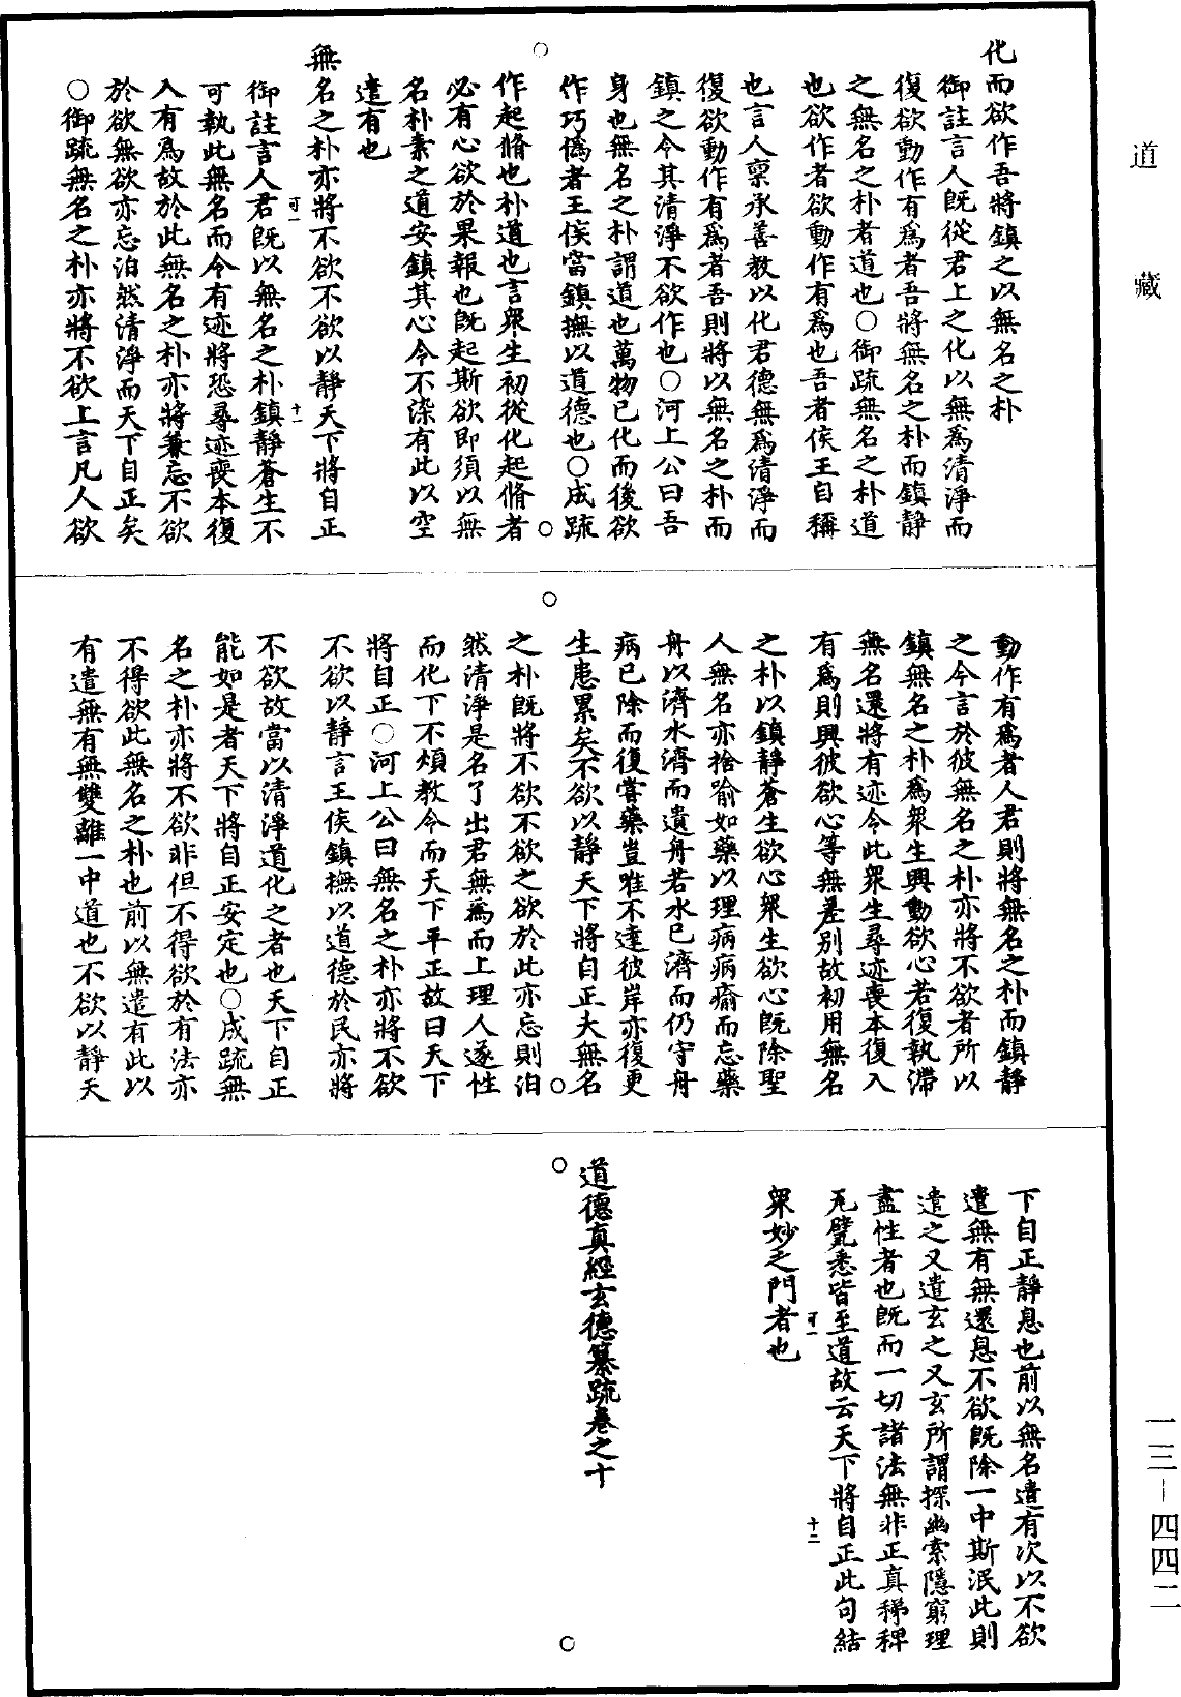 道藏
化而欲作吾將鎮之以無名之朴
御註言人既從君上之化以無爲清淨而
復欲動作有爲者吾將無名之朴而鎮靜
之無名之朴者道也○御疏無名之朴道
也欲作者欲動作有爲也吾者侯王自稱
也言人稟承善教以化君德無爲清淨而
復欲動作有爲者吾則將以無名之朴而
鎮之令其清淨不欲作也○河上公曰吾
身也無名之朴謂道也萬物已化而後欲
作巧僞者王侯當鎮撫以道德也○成疏
作起脩也朴道也言衆生初從化起脩者
必有心欲於果報也既起斯欲即須以無
名朴素之道安鎮其心令不染有此以空
遣有也
無名之朴亦將不欲不欲以靜天下將自正
御註言人君既以無名之朴鎮靜蒼生不
可執此無名而令有迹將恐尋迹喪本復
入有爲故於此無名之朴亦將兼忘不欲
於欲無欲亦忘泊然清淨而天下自正矣
○御疏無名之朴亦將不欲上言凡人欲
可一
十一
動作有爲者人君則將無名之朴而鎮靜
之今言於彼無名之朴亦將不欲者所以
鎮無名之朴爲衆生興動欲心若復執滯
無名還將有迹令此衆生尋迹喪本復入
有爲則興彼欲心等無差別故初用無名
之朴以鎮靜蒼生欲心衆生欲心既除聖
人無名亦捨踰如藥以理病病瘉而忘藥
舟以濟水濟而遺舟若水已濟而仍守舟
病已除而復嘗藥豈唯不達彼岸亦復更
生患累矣不欲以靜天下將自正夫無名
之朴既將不欲不欲之欲於此亦忘則泊
然清淨是名了出君無爲而上理人遂性
而化下不煩教令而天下平正故曰天下
將自正○河上公曰無名之朴亦將不欲
不欲以靜言王侯鎮撫以道德於民亦將
不欲故當以清淨道化之者也天下自正
能如是者天下將自正安定也○成疏無
名之朴亦將不欲非但不得欲於有法亦
不得欲此無名之朴也前以無遣有此以
有遣無有無雙離一中道也不欲以靜天
下自正靜息也前以無名遣有次以不欲
遣無有無還息不欲既除一中斯泯此則
遣之又遣玄之又玄所謂探幽索隱窮理
盡性者也既而一切諸法無非正真稊稗
瓦甓悉皆至道故云天下將自正此句結
衆妙之門者也
可一
十二
道德真經玄德纂疏卷之十
一三－四四二